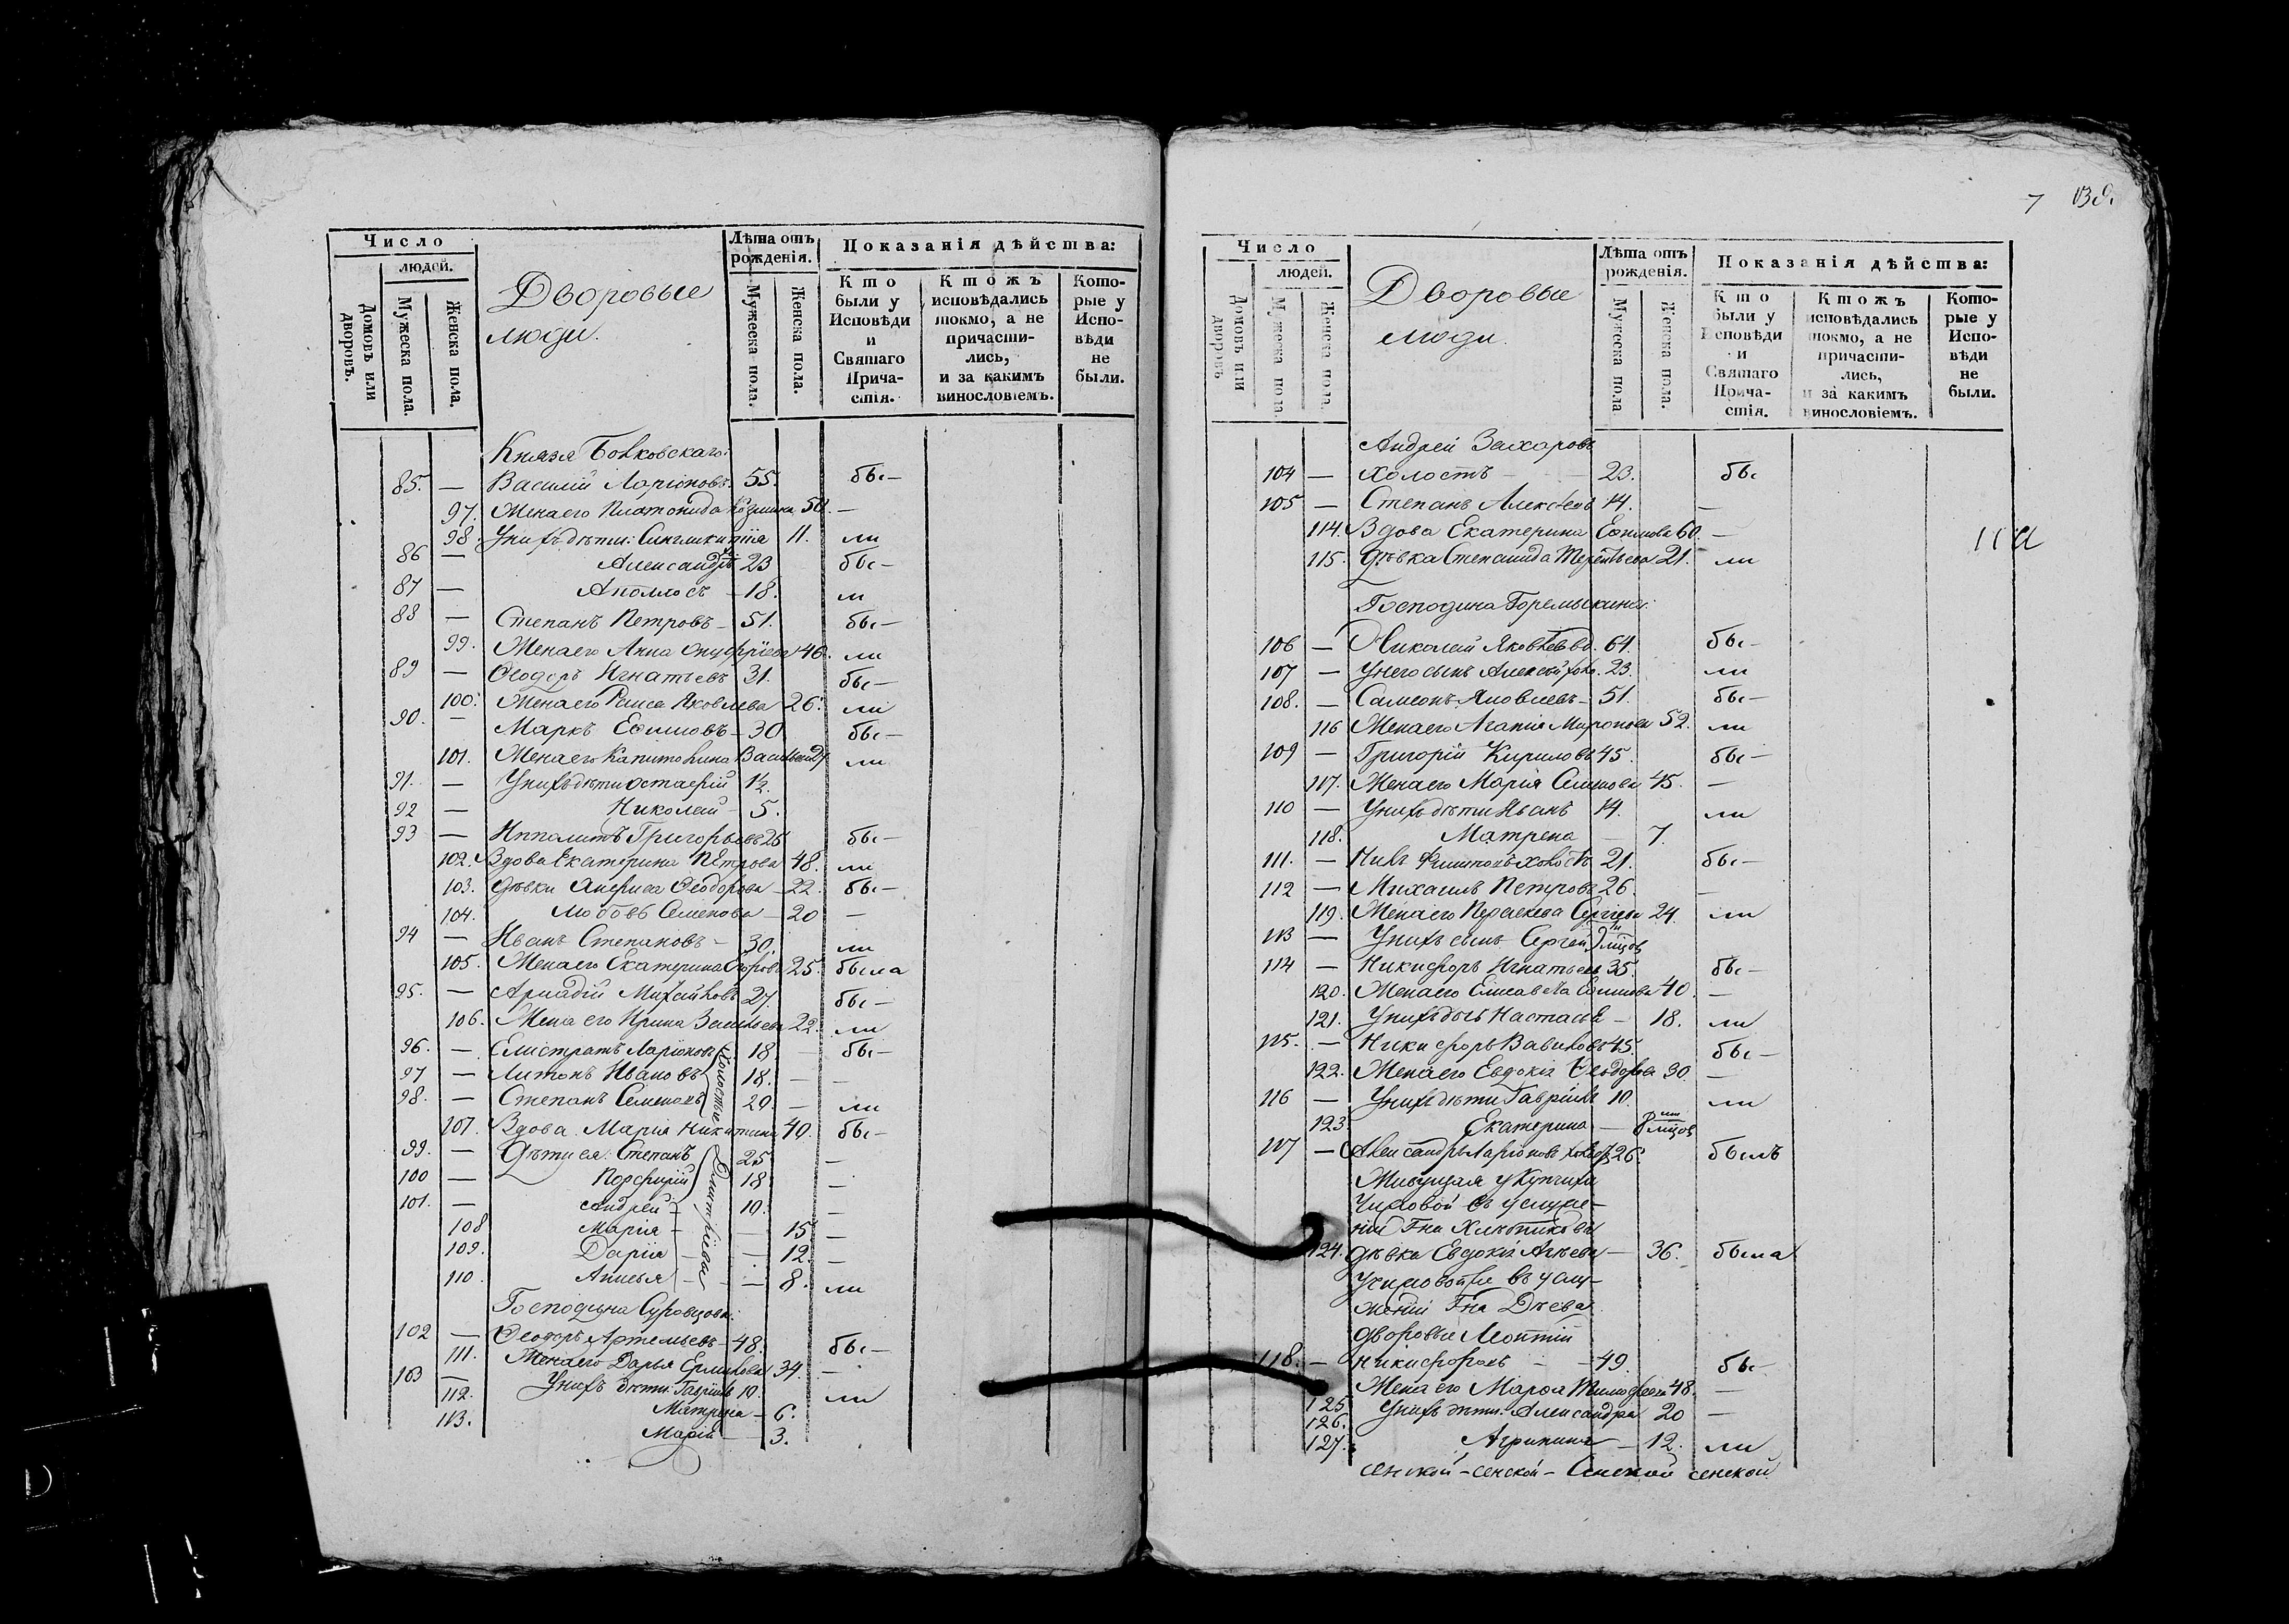 Число
людей.
Домовъ или дворовъ.
Мужеска пола.
Женска пола.
Дворовые
люди.
Лѣта отъ
рожденія.
Мужеска пола.
Женска пола.
Показанія дѣйства:
Кто
были у
Исповѣди
и
Святаго
Прича-
стія.
Ктожъ
исповѣдались
токмо, а не
причасти-
лись,
и за какимъ
винословіемъ.
Кото-
рые у
Испо-
вѣди
не
были.
Князя
85. — Василій Ларіоновъ. 55. бы—
97. Жена его Платонида Козмина 50. —
98. У нихъ дѣти: 11. ли
86 — Александръ 23 бы—
87 — Аполлосъ — 18. ли
88 — Степанъ Петровъ — 51. бы—
99. Жена его Анна Онуфріева 46. ли
89 — Ѳеодоръ Игнатьевъ 31. бы—
100. Жена его Раиса Яковлева 26. ли
90. — Маркъ Ефимовъ — 30 бы—
101. Жена его Капитолина ли
91. — У нихъ дѣти 1½.
92 — Николай — 5.
93 — Ипполитъ Григорьевъ 26 бы—
102. Вдова Екатерина Петрова 48. ли
103. дѣвки Ѳеодорова — 22. бы—
104. Любовь Семенова — 20 —
94 — Иванъ Степановъ — 30. ли
105. Жена его Екатерина Егорова 25. была
95. — Аркадій Михайловъ 27. бы—
106. Жена его Ирина Васильева 22. ли
96. — Елистратъ Ларіоновъ 18. — бы—
97 — Антонъ Ивановъ 18. — —
98. — Степанъ Семеновъ 20. — ли
холостые
107. Вдова Мария Никитина 40. бы—
99. — Дѣти ея: Степанъ 25 —
100 — Порфирій 18 —
101. — Андрей — 10. —
108 Марія — — 15 —
109. Дарія — — 12. —
110. Анисья — — 8. ли
Дмитріевы
Господина Суровцова:
102 — Ѳеодоръ Артемьевъ — 48. бы—
111. Жена его Дарья Ермилова 34. —
103 — У нихъ дѣти: Гавріилъ 10. ли
112. Матрена — 6.
113. Марія — 3.
7 139.
Число
людей.
Домовъ или дворовъ
Мужеска пола
Женска пола.
Дворовые
люди.
Лѣта отъ
рожденія.
Мужеска пола
Женска пола.
Показанія дѣйства:
Кто
были у
Исповѣди
и
Святаго
Прича-
стія.
Ктожъ
исповѣдались
токмо, а не
причасти-
лись,
и за какимъ
винословіемъ.
Кото-
рые у
Испо-
вѣди
не
были.
Андрей Захаровъ
104 — холостъ — 23. бы
105 — Степанъ Алексѣевъ 14. —
114. Вдова Екатерина Ефимова 60. —
115. Дѣвка Степанида Терентьева 21. ли
Господина Горемыкина:
106 — Николай Яковлевъ вд. 64. бы—
107 — У него сынъ Алексѣй хол. 23. ли
108. — Самсонъ Яковлевъ — 51. бы—
116 Жена его Агапія Миронова 52. ли
109 — Григорій Кириловъ 45. бы—
117. Жена его Марія Семенова 45. —
110 — У нихъ дѣти Иванъ 14. ли
118. Матрена — 7.
111. — Нилъ холостъ 21. бы—
112 — Михаилъ Петровъ 26. —
119. Жена его Параскева Сергіева 24. ли
113 — У нихъ сынъ Сергей мѣсяц.
114 — Никифоръ Игнатьевъ 35. бы—
120. Жена его Елисавета Ефимова 40. —
121. У нихъ дочь Настасья — 18. ли
115. — Никифоръ Вавиловъ 45. бы—
122. Жена его Евдокія Ѳеодорова 30. —
116 — У нихъ дѣти Гавріилъ 10. ли
123. Екатерина — 8 мѣсяц.
117 — Александръ Ларіоновъ 26. былъ
Живущая у Купчихи
124. дѣвка Евдокія — 36. была
дворовые Леонтій
118. — Никифоровъ — 49. бы—
Жена его Марѳа Тимофеева 48. —
125 У нихъ дѣти: Александра 20 —
126.
127. Агрипина — 12. ли
сенской — сенской — Сенской сенской